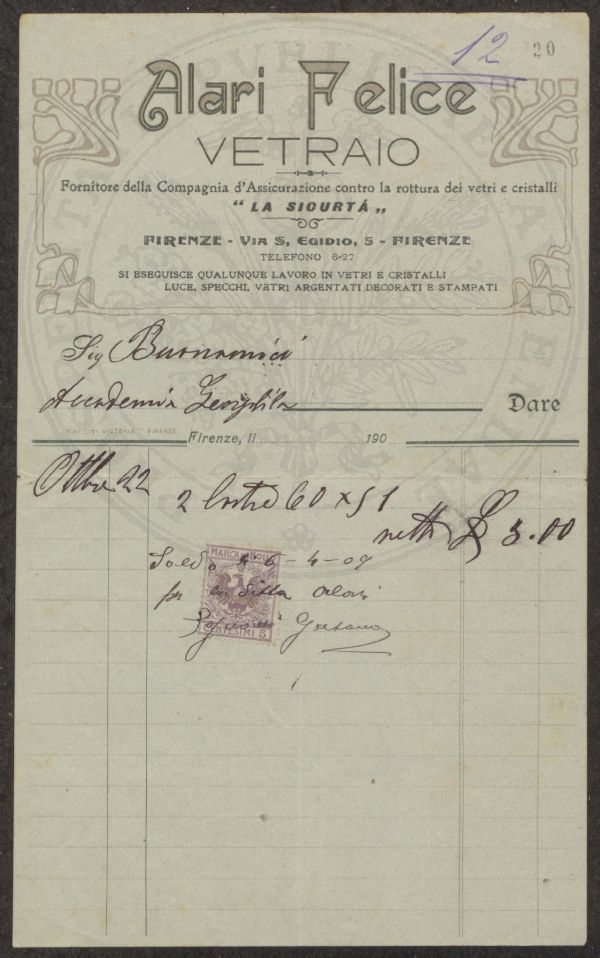 12 20
Alari Felice
VETRAIO
Fornitore della Compagnia d'Assicurazione contro la rottura dei vetri e cristalli
“ LA SICURTÁ „
FIRENZE - VIA S. EGIDIO, 5 - FIRENZE
TELEFONO 6-27
SI ESEGUISCE QUALUNQUE LAVORO IN VETRI E CRISTALLI
LUCE, SPECCHI, VETRI ARGENTATI DECORATI E STAMPATI
Sig Buonamici
Accademia Dare
TIP. LIT. VICTORIA FIRENZE
Firenze, li 190
Ottbre 22
2 lastre 60 x 51
netto £ 3.00
MARCA DA BOLLO
Saldo 6-4-09
per la Ditta Alari
CENTESIMI 5
Gaetano